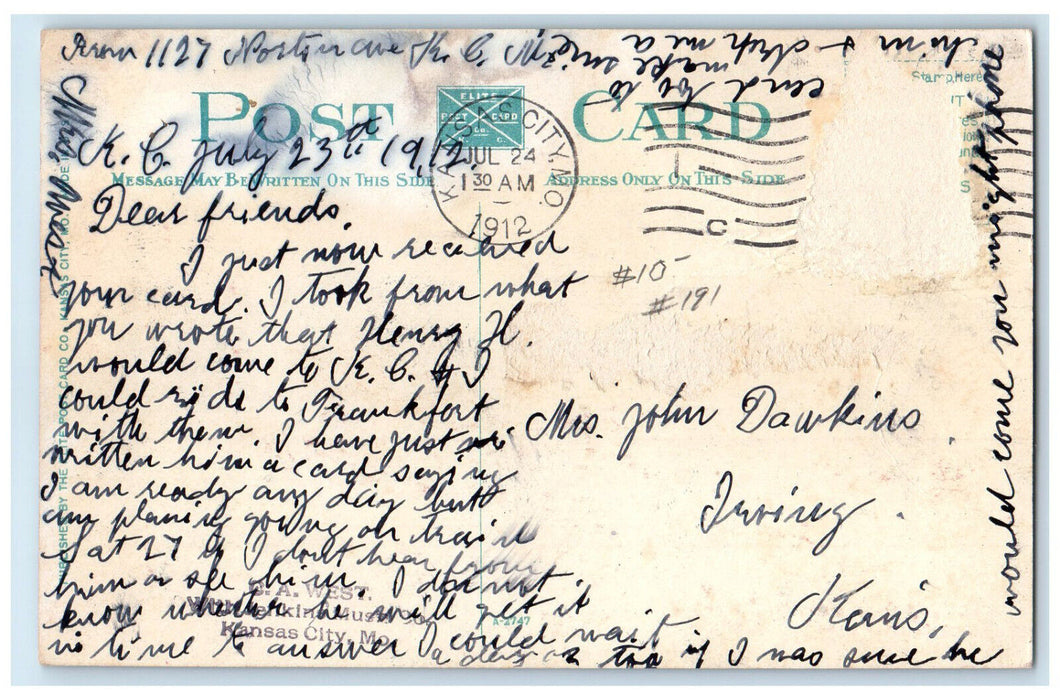 From 1127 Norton ave K. C. Mo
POST CARD
ELITE
POST CARD
Co.
K. C. July 23th 1912.
KANSAS CITY, MO.
JUL 24
1 30 AM
1912
C
Stamp Here
MESSAGE MAY BE WRITTEN ON THIS SIDE
ADDRESS ONLY ON THIS SIDE
Dear friends,
I just now received
your card. I took from what
you wrote that Henry H.
would come to K. C. & I
could ride to Frankfort
with them. I have just
written him a card saying
I am ready any day but
am planing going on train
Sat 27 if I dont hear from
him or see him. I do not
know whether he will get it
in time to answer I could wait
a day or two if I was sure he
would come you might phone
him & drop me a
card so to
make sure
Mrs.
#10-
#191
Mrs. John Dawkins
Irving.
Kans,
C. A. WEST.
With Jenkins Music Co.
Kansas City, Mo.
A-2747
PUBLISHED BY THE ELITE POST CARD CO. KANSAS CITY, MO.